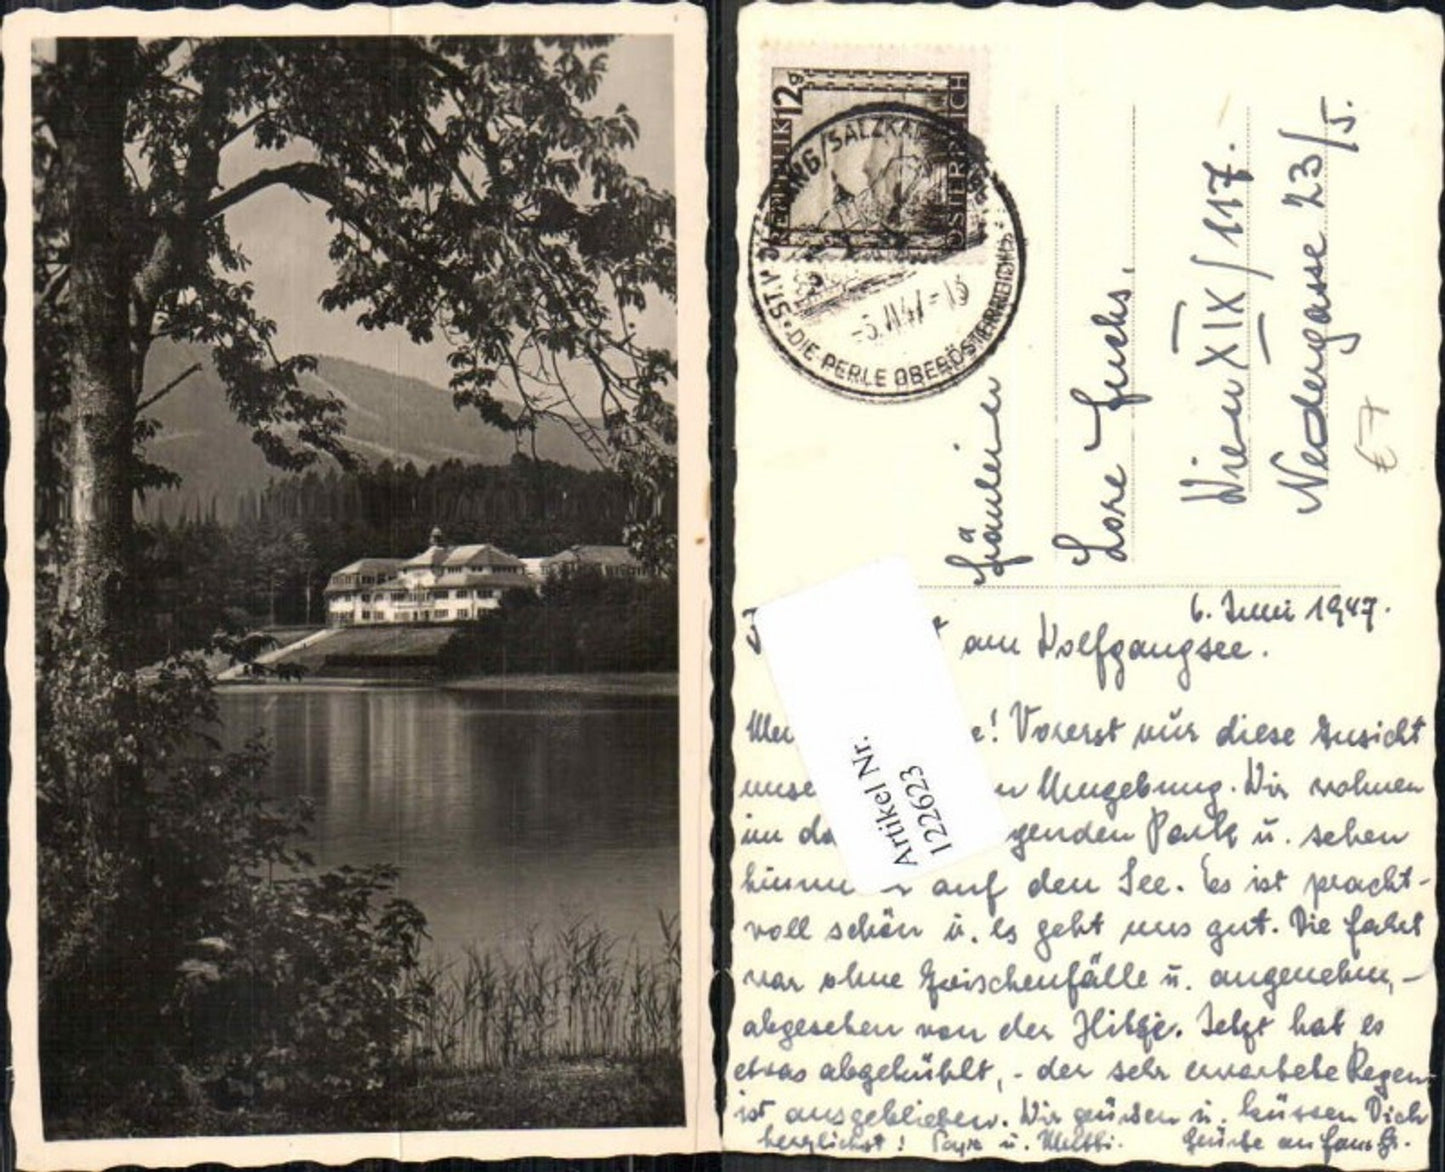 REPUBLIK
ÖSTERREICH
12g
ST. WOLFGANG/SALZKAMMERGUT
-5.VI.47-13
DIE PERLE OBERÖSTERREICHS
Fräulein
Lore Fuchs,
Wien XIX/117.
Nedergasse 23/5.
€ 7
Artikel Nr.
122623
6. Juni 1947.
am Wolfgangsee.
! Vorerst nur diese Ansicht
Umgebung. Wir wohnen
im genden Park u. sehen
auf den See. Es ist pracht-
voll schön u. es geht uns gut. Die Fahrt
war ohne Zwischenfälle u. angenehm, -
abgesehen von der Hitze. Jetzt hat es
etwas abgekühlt, - der sehr erwartete Regen
ist ausgeblieben. Wir grüssen u. küssen Dich
herzlichst! u. Mutti. Grüsse an